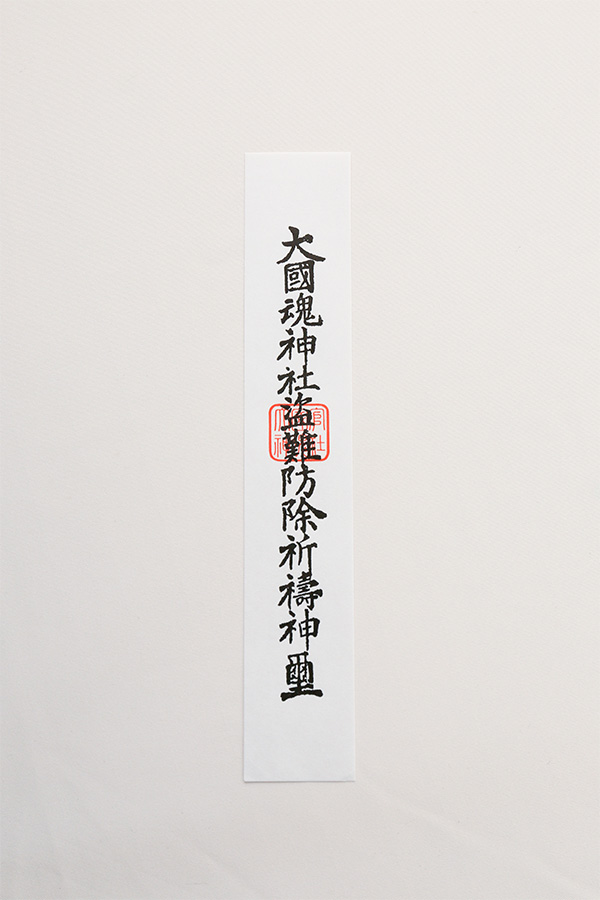 大國魂神社盗難防除祈禱神璽